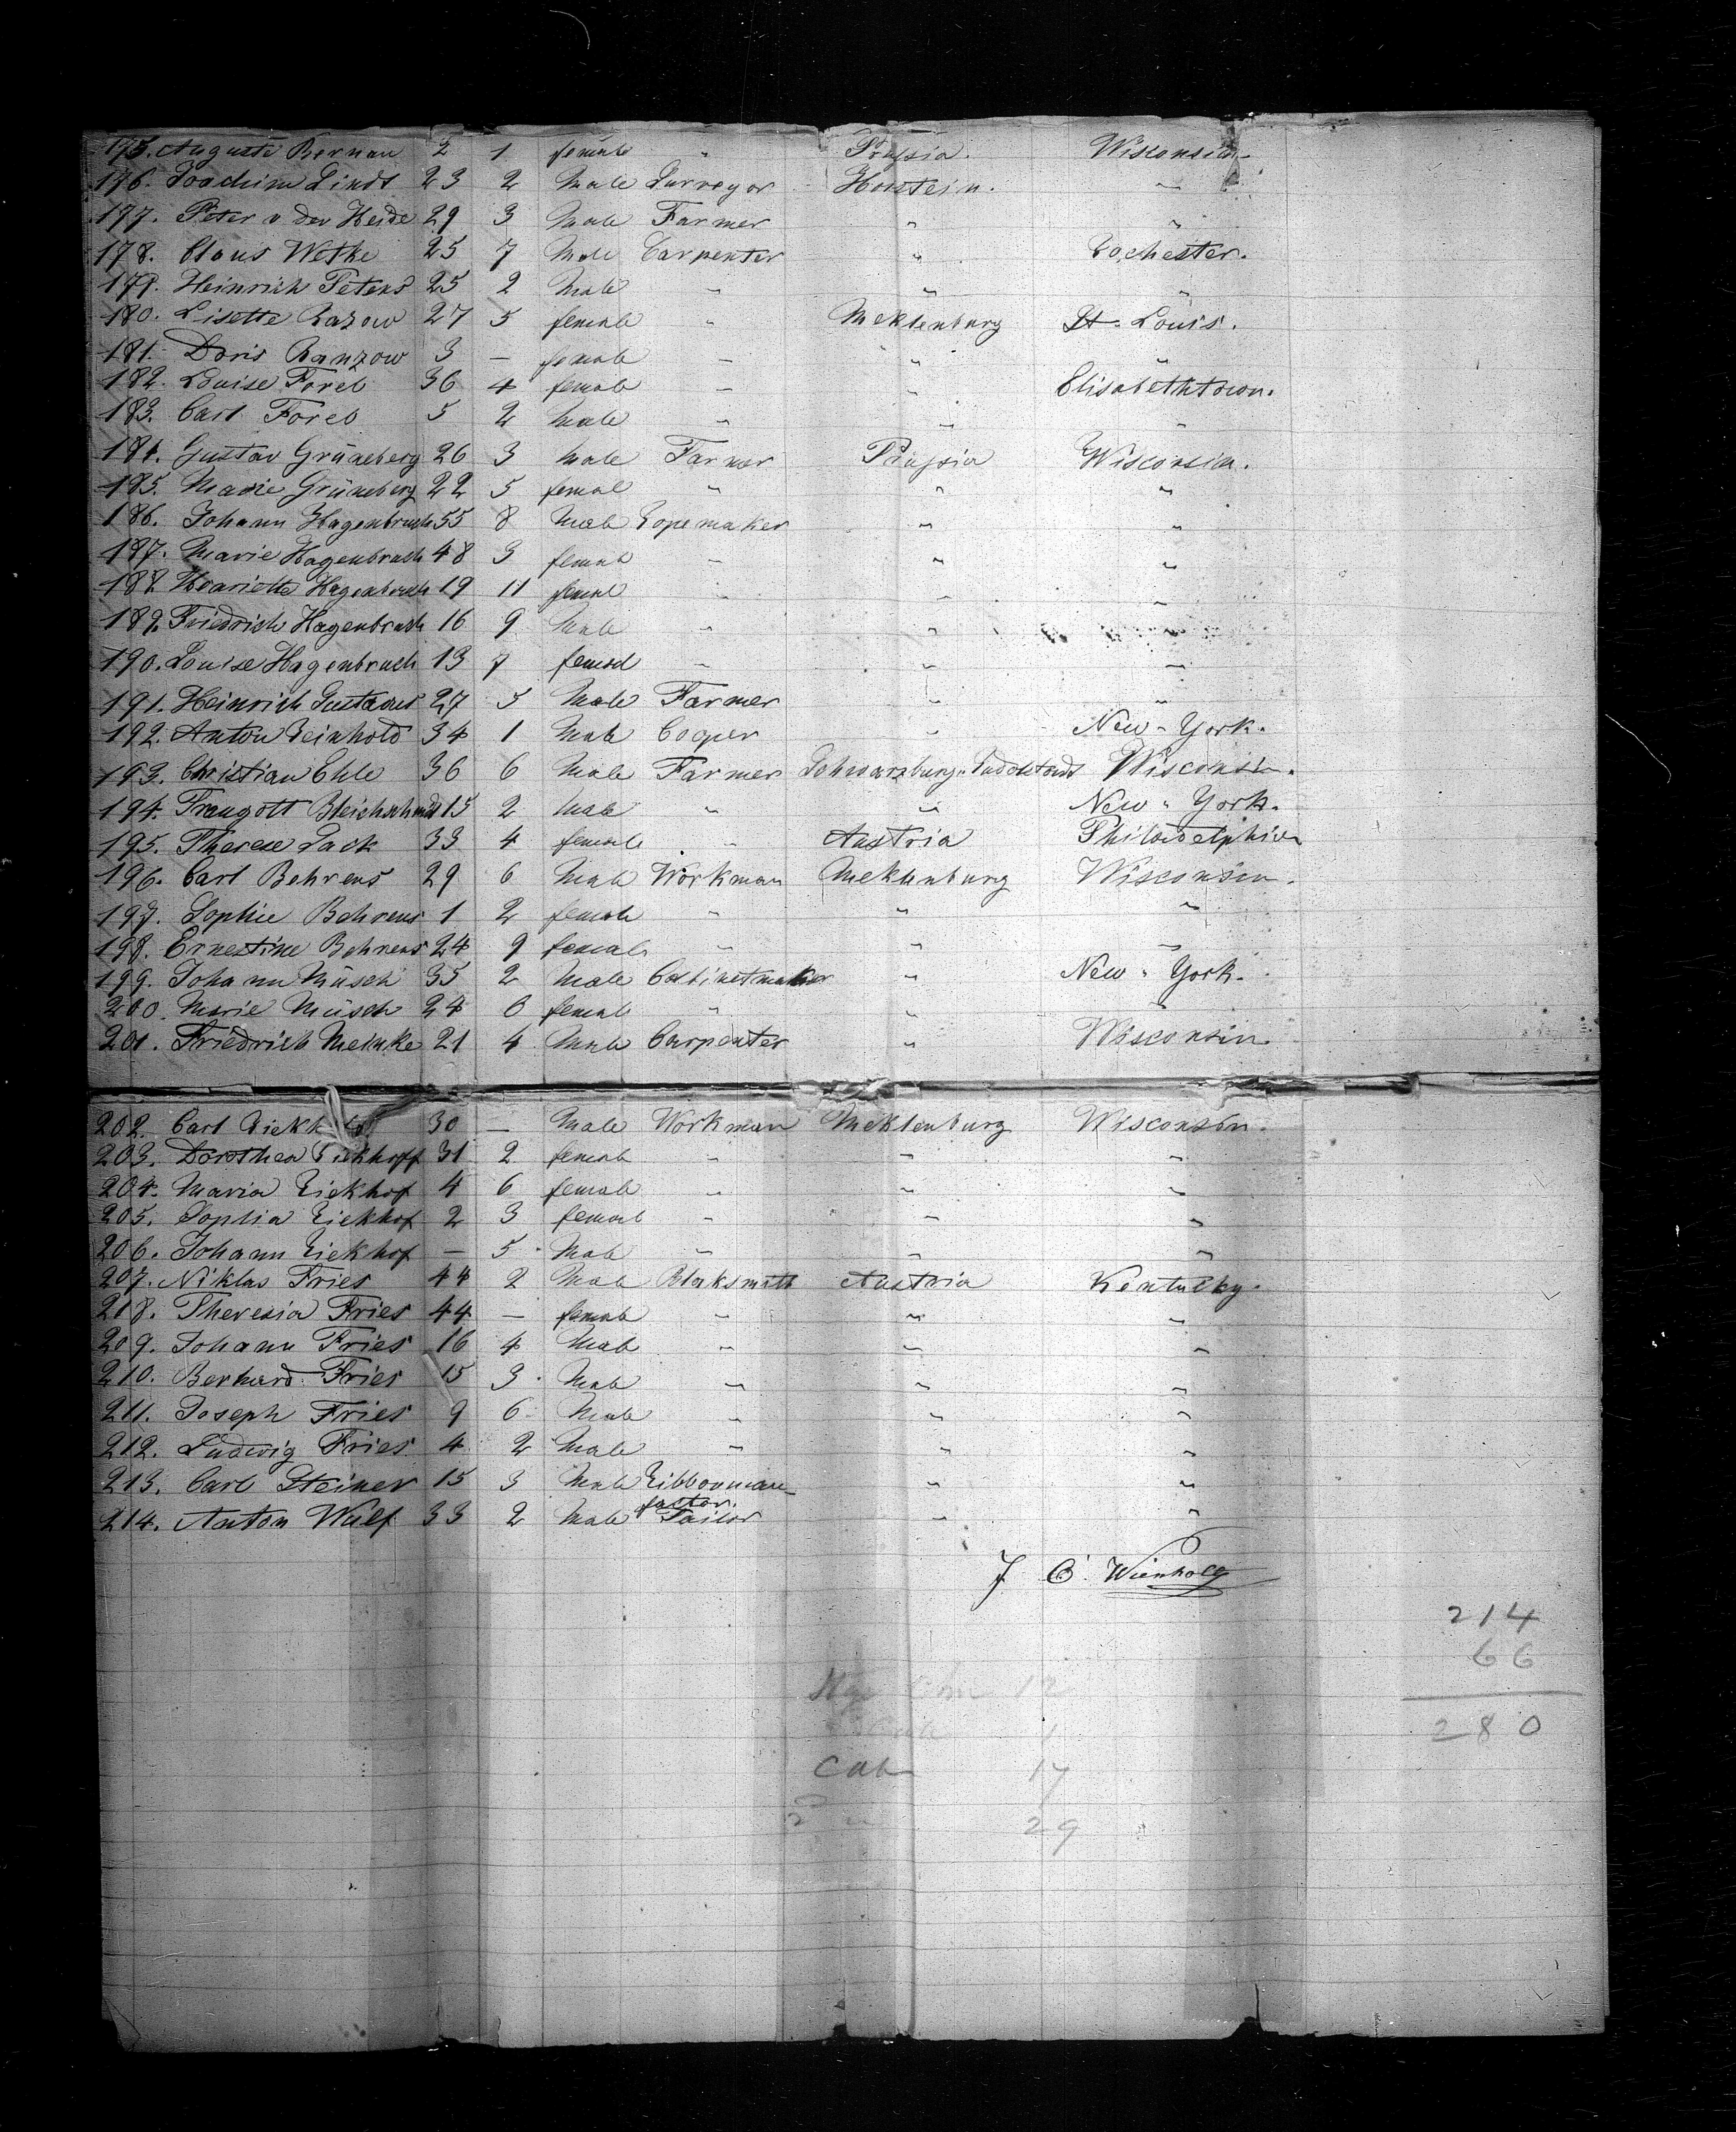 175. Auguste Bernau 2 1 female " Prussia. Wisconsin.
176. Joachim Lindt 23 2 Male Surveyor Holstein. "
177. Peter v der Heide 29 3 Male Farmer " "
178. Claus Wethe 25 7 Male Carpenter " Rochester.
179. Heinrich Peters 25 2 Male " " "
180. Lisette Razow 27 5 female " Meklenburg St. Louis.
181. Doris Ranzow 3 — female " " "
182. Louise Foreb 36 4 female " " Elisabethtown.
183. Carl Foreb 5 2 Male " " "
184. Gustav Grüneberg 26 3 Male Farmer Prussia Wisconsin.
185. Marie Grüneberg 22 5 femal " " "
186. Johann Hagenbruch 55 8 Male Ropemaker " "
187. Marie Hagenbruch 48 3 female " " "
188. Henriette Hagenbruch 19 11 femal " " "
189. Friedrich Hagenbruch 16 9 Male " " "
190. Louise Hagenbruch 13 7 femal " " "
191. Heinrich Gustavus 27 5 Male Farmer " "
192. Anton Reinhold 34 1 Male Cooper " New-York.
193. Christian Ehle 36 6 Male Farmer Schwarzburg-Rudolstadt Wisconsin.
194. Traugott Bleichschmidt 15 2 Male " " New-York.
195. Therese Pack 33 4 female " Austria Philadelphia
196. Carl Behrens 29 6 Male Workman Meklenburg Wisconsin.
197. Sophie Behrens 1 2 female " " "
198. Ernestine Behrens 24 9 female " " "
199. Johann Müsch 35 2 Male Cabinetmaker " New-York.
200. Marie Müsch 24 6 female " " "
201. Friedrich Meinke 21 4 Male Carpenter " Wisconsin.
202. Carl 30 — Male Workman Meklenburg Wisconsin.
203. Dorothea Rickhoff 31 2 female " " "
204. Maria Rickhof 4 6 female " " "
205. Sophia Rickhof 2 3 female " " "
206. Johann Rickhof — 5 Male " " "
207. Niklas Fries 44 2 Male Blaksmith Austria Kentucky.
218. Theresia Fries 44 — female " " "
209. Johann Fries 16 4 Male " " "
210. Berhard Fries 15 3 Male " " "
211. Joseph Fries 9 6 Male " " "
212. Ludwig Fries 4 2 Male " " "
213. Carl Steiner 15 3 Male Ribbonmanu " "
factor.
214. Anton Wulf 33 2 Male Tailor " "
J C Wienholg
214
66
12
280
1
Cab 17
2 " 29